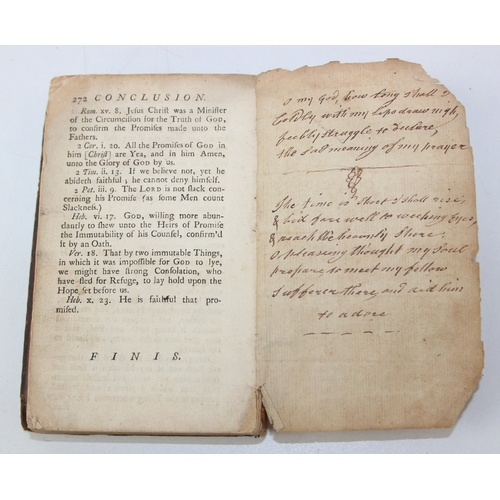 272 CONCLUSION.
Rom. xv. 8. Jesus Christ was a Minister
of the Circumcision for the Truth of GOD,
to confirm the Promises made unto the
Fathers.
2 Cor. i. 20. All the Promises of GOD in
him [Christ] are Yea, and in him Amen,
unto the Glory of GOD by us.
2 Tim. ii. 13. If we believe not, yet he
abideth faithful; he cannot deny himself.
2 Pet. iii. 9. The LORD is not slack con-
cerning his Promise (as some Men count
Slackness.)
Heb. vi. 17. GOD, willing more abun-
dantly to shew unto the Heirs of Promise
the Immutability of his Counsel, confirm'd
it by an Oath.
Ver. 18. That by two immutable Things,
in which it was impossible for GOD to lye,
we might have strong Consolation, who
have fled for Refuge, to lay hold upon the
Hope set before us.
Heb. x. 23. He is faithful that pro-
mised.
FINIS.
O my God, how long shall I
Coldly with my Lips draw nigh,
feebly struggle to declare,
the sad meaning of my prayer
The time is short I shall rise,
& bid farewell to weeping Eyes,
& reach the heavenly Shore;
O, pleasing thought my Soul
prepare to meet my fellow
Sufferer there, and aid him
to adore